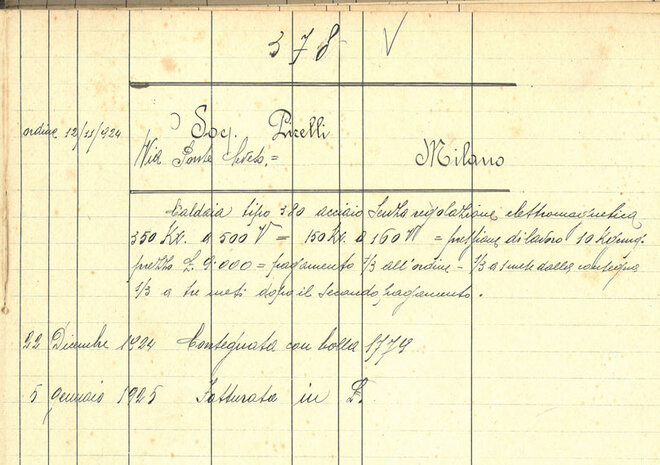 378 V
ordine 12/11/924 Soc. Pirelli
Via Ponte Seveso = Milano
Caldaia tipo 380 acciaio senza regolazione elettromagnetica
350 Kw. a 500 V = 150 Kw. a 160 V = pressione di lavoro 10 Kg/cmq.
prezzo £. 9.000 = pagamento 1/3 all'ordine - 1/3 a 1 mese dalla consegna
1/3 a tre mesi dopo il secondo pagamento.
22 Dicembre 1924 Consegnata con bolla 1779
5 gennaio 1925 Fatturata in £.